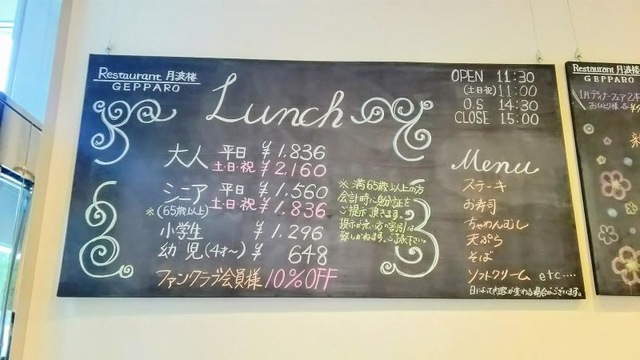 Restaurant 月波楼
GEPPARO
Lunch
大人 平日 ¥1.836
土日・祝 ¥2,160
シニア 平日 ¥1.560
※(65歳以上) 土日・祝 ¥1.836
小学生 ¥1.296
幼児(4才〜) ¥648
ファンクラブ会員様 10%OFF
※満65歳以上の方
会計時に身分証を
ご提示頂きます。
致しかねます。ご了承下さい
OPEN 11:30
(土日祝)11:00
O.S 14:30
CLOSE 15:00
Menu
ステーキ
お寿司
ちゃわんむし
天ぷら
そば
ソフトクリーム etc....
日によって内容が変わる場合がございます。
Restaurant 月波楼
GEPPARO